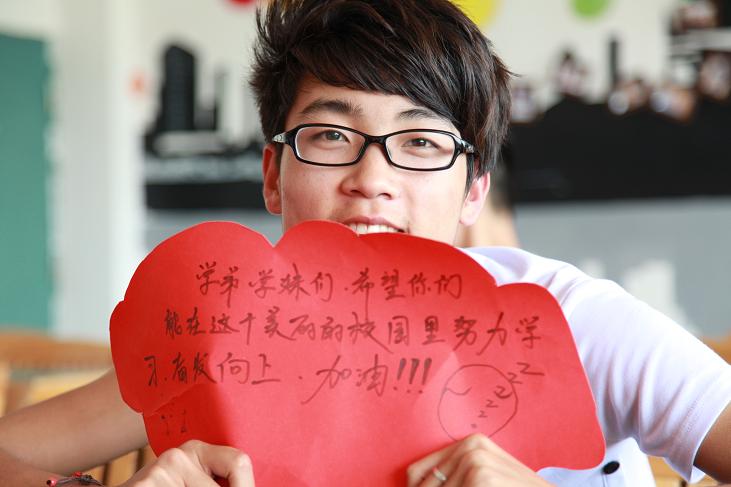 学弟学妹们.希望你们
能在这个美丽的校园里努力学
习.奋发向上.加油!!!
zzzz